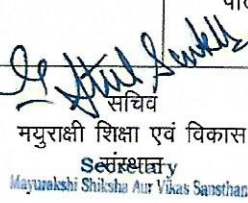 सचिव
मयुराक्षी शिक्षा एवं विकास
संस्थान
Secretary
Mayurakshi Shiksha Aur Vikas Sansthan